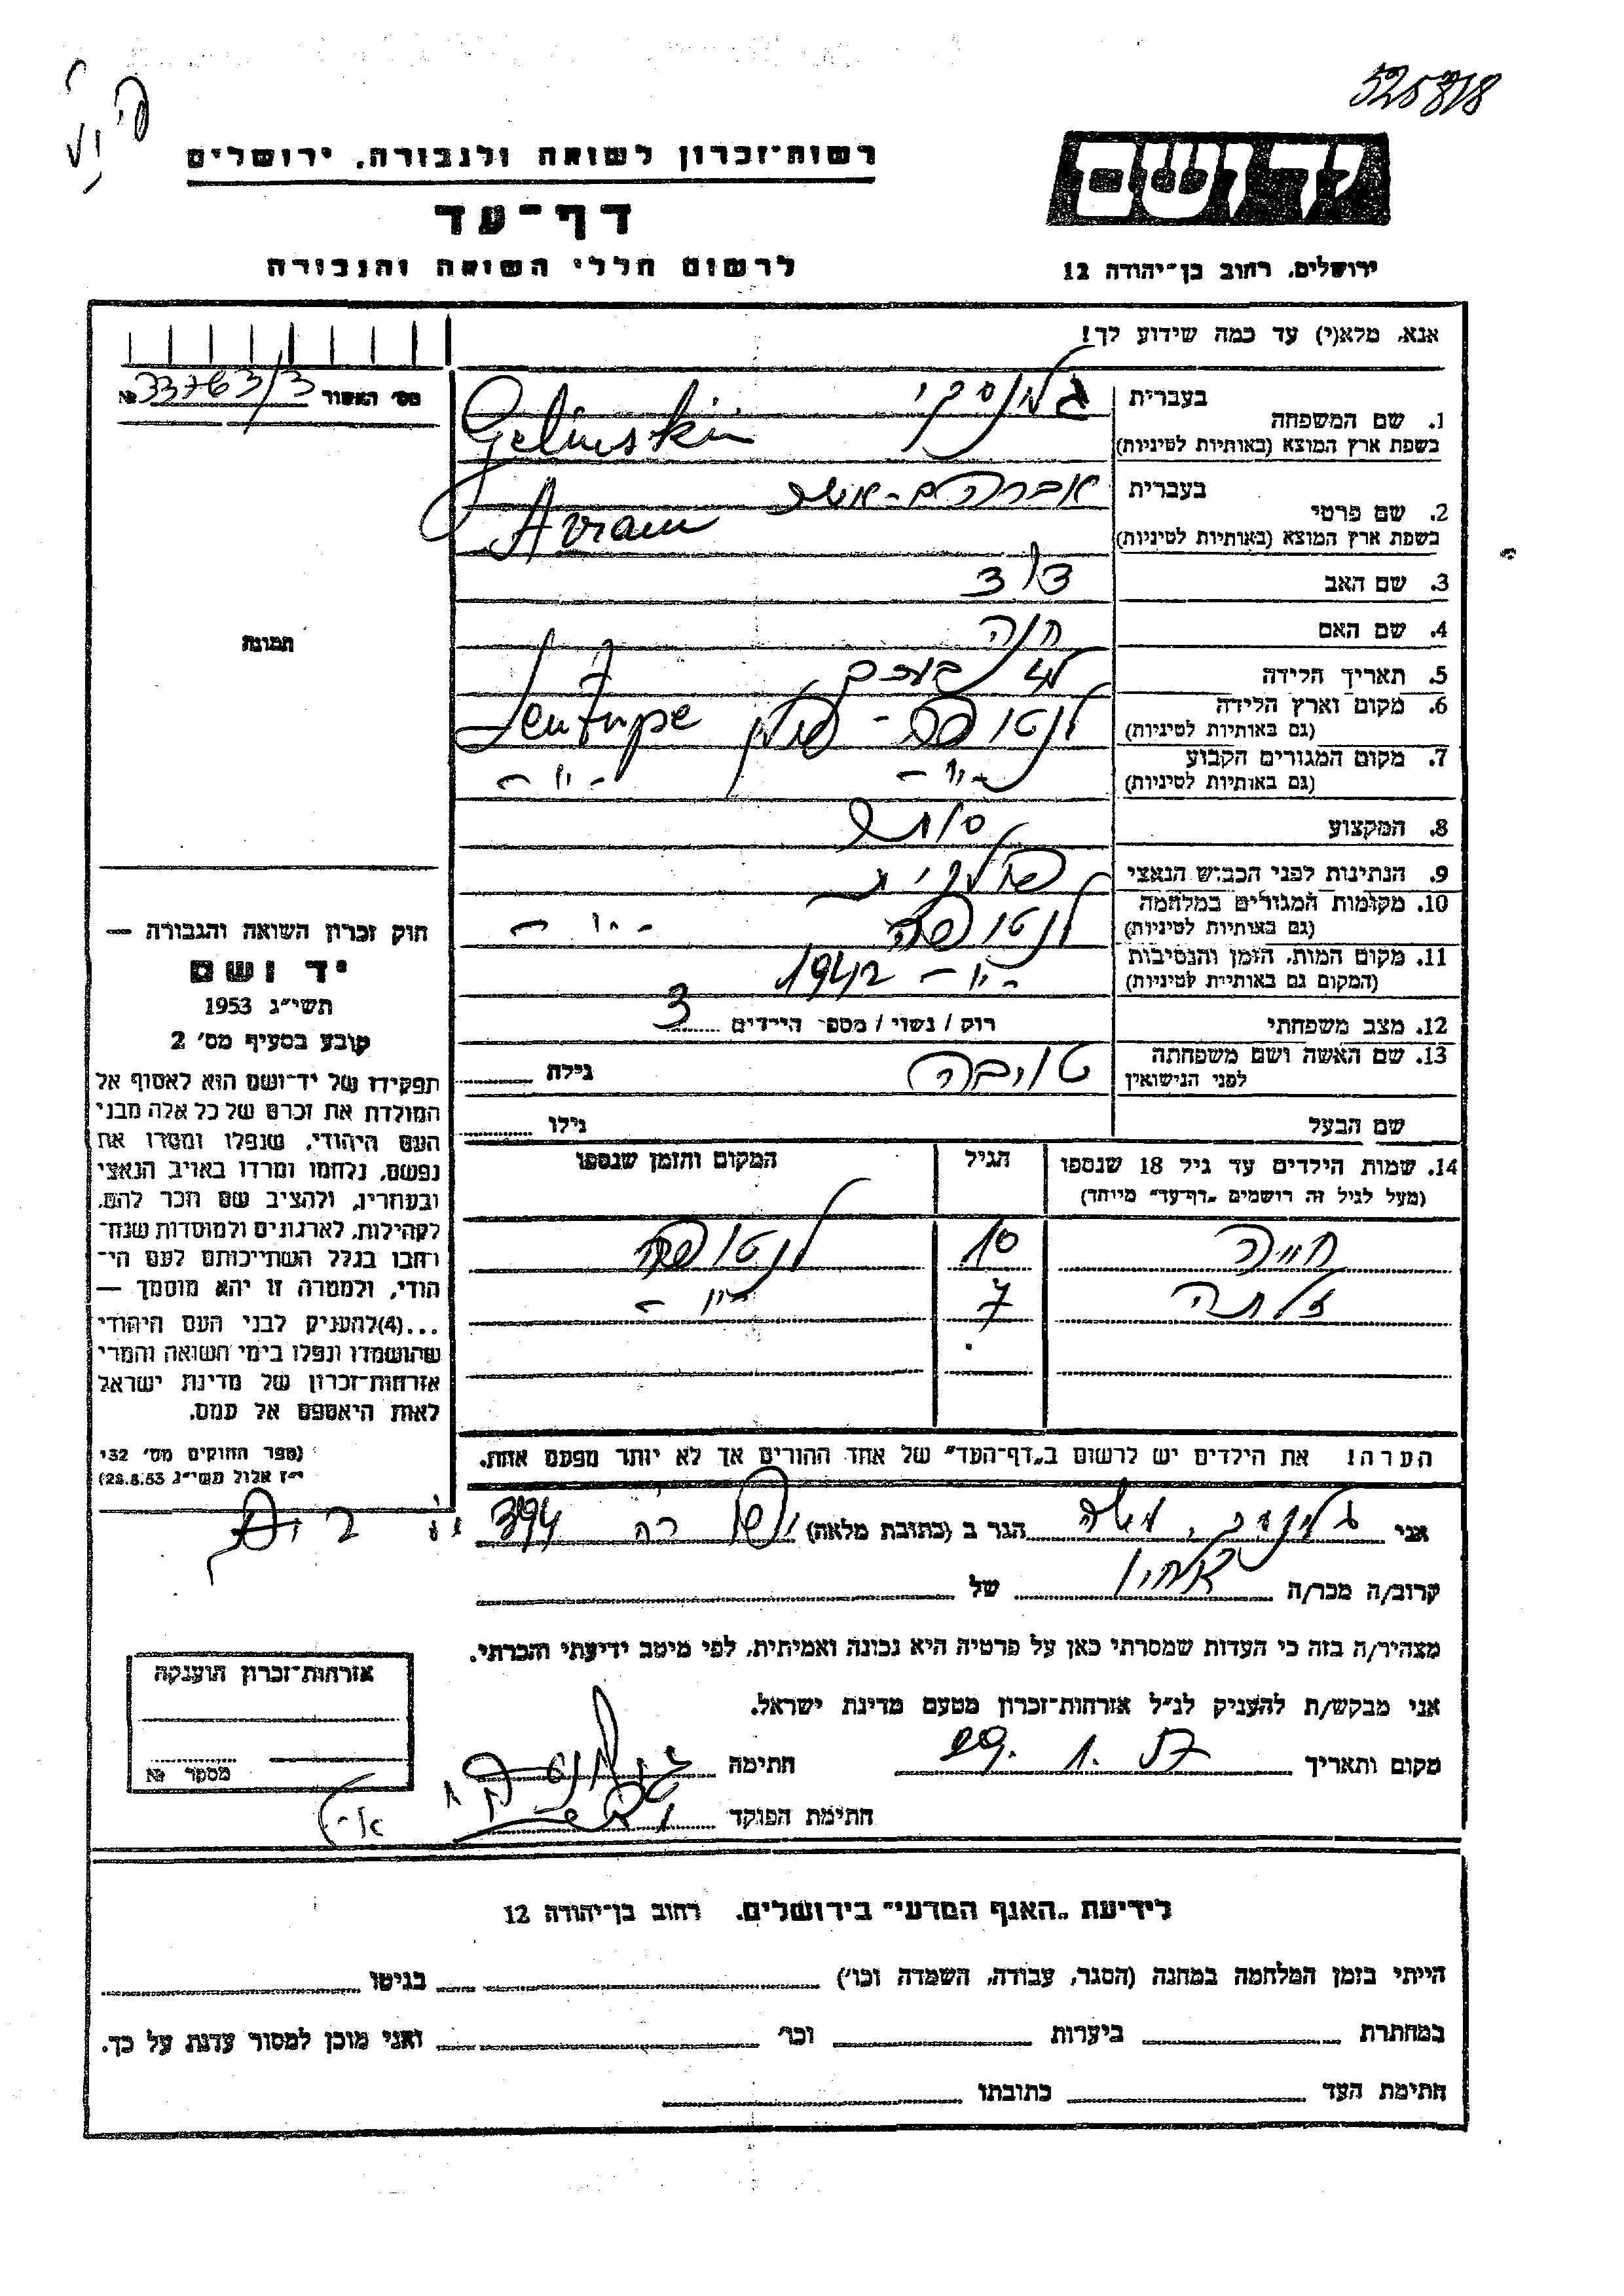 525818
רשות־זכרון לשואה ולגבורה, ירושלים
יד ושם
דף־עד
לרשום חללי השואה והגבורה
ירושלים, רחוב בן־יהודה 12
אנא, מלא(י) עד כמה שידוע לך!
מס׳ האשור № 33763/3
1. שם המשפחה בעברית גלינסקי
בשפת ארץ המוצא (באותיות לטיניות) Gelinski
2. שם פרטי בעברית אברהם-אשר
בשפת ארץ המוצא (באותיות לטיניות) Avram
3. שם האב דוד
4. שם האם חנה
תמונה
5. תאריך הלידה
6. מקום וארץ הלידה
(גם באותיות לטיניות)
7. מקום המגורים הקבוע -"-  -"-
(גם באותיות לטיניות)
8. המקצוע סוחר
9. הנתינות לפני הכבוש הנאצי פולנית
10. מקומות המגורים במלחמה -"-
(גם באותיות לטיניות)
11. מקום המות, הזמן והנסיבות -"- 1942
(המקום גם באותיות לטיניות)
12. מצב משפחתי רווק / נשוי / מספר הילדים 3
13. שם האשה ושם משפחתה לפני הנישואין טויבה גילה
שם הבעל גילו
14. שמות הילדים עד גיל 18 שנספו הגיל המקום והזמן שנספו
(מעל לגיל זה רושמים „דף־עד” מיוחד)
חייה 10
זלתה 7 -"-
הערה! את הילדים יש לרשום ב„דף־העד” של אחד ההורים אך לא יותר מפעם אחת.
חוק זכרון השואה והגבורה —
יד ושם
תשי״ג 1953
קובע בסעיף מס׳ 2
תפקידו של יד־ושם הוא לאסוף אל
המולדת את זכרם של כל אלה מבני
העם היהודי, שנפלו ומסרו את
נפשם, נלחמו ומרדו באויב הנאצי
ובעוזריו, ולהציב שם וזכר להם,
לקהילות, לארגונים ולמוסדות שנח־
רבו בגלל השתייכותם לעם הי־
הודי, ולמטרה זו יהא מוסמך —
...(4)להעניק לבני העם היהודי
שהושמדו ונפלו בימי השואה והמרי
אזרחות־זכרון של מדינת ישראל
לאות היאספם אל עמם.
(ספר החוקים מס׳ 132
י״ז אלול תשי״ג 28.8.53)
אני משה הגר ב (כתובת מלאה) 394
קרוב/ה מכר/ה אחיו של
מצהיר/ה בזה כי העדות שמסרתי כאן על פרטיה היא נכונה ואמיתית, לפי מיטב ידיעתי והכרתי.
אני מבקש/ת להעניק לנ״ל אזרחות־זכרון מטעם מדינת ישראל.
מקום ותאריך 29. 1. 57 חתימה
חתימת הפוקד
אזרחות־זכרון הוענקה
מספר №
לידיעת „האגף המדעי” בירושלים, רחוב בן־יהודה 12
הייתי בזמן המלחמה במחנה (הסגר, עבודה, השמדה וכו׳) בגיטו
במחתרת ביערות וכו׳ ואני מוכן למסור עדות על כך.
חתימת העד כתובתו